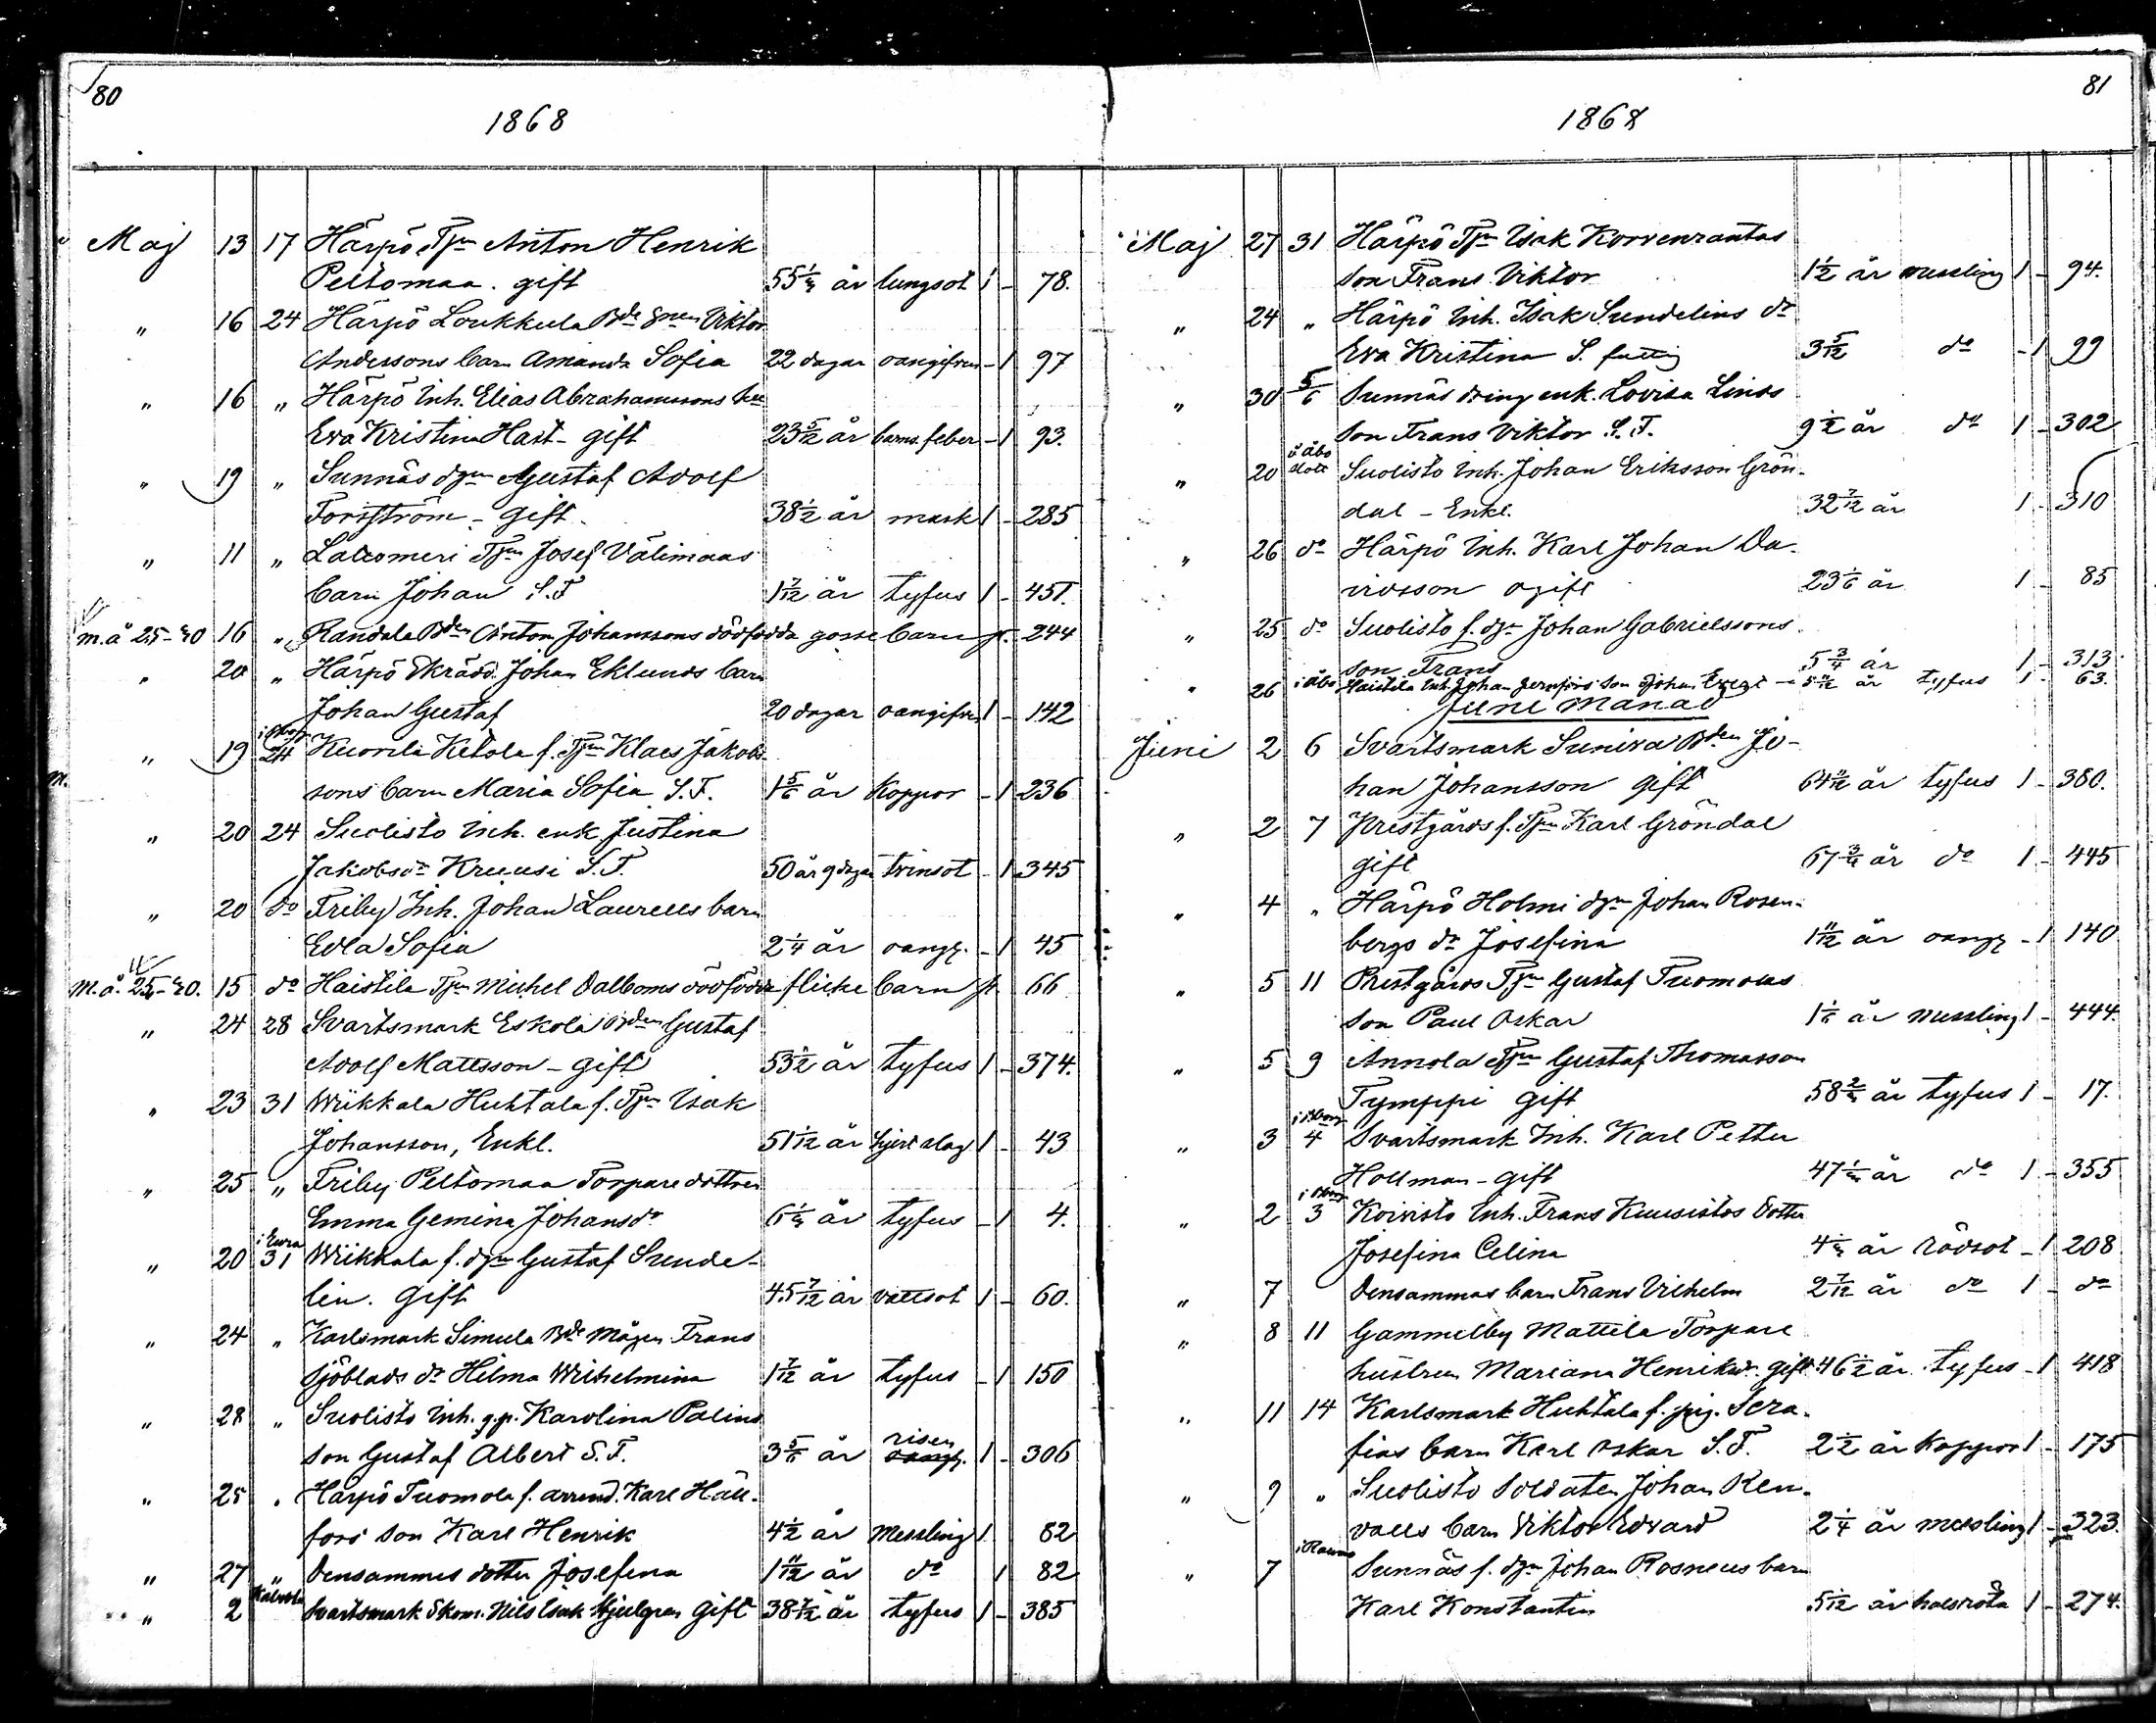 80
1868
Maj 13 17 Härpö Tjn Anton Henrik
Peltomaa. gift 55 1/4 år lungsot 1 - 78.
" 16 24 Härpö Loukkula Bde Viktor
Anderssons barn Amanda Sofia 22 dagar oangifven - 1 97
" 16 " Härpö Inh. Elias Abrahamssons hu
Eva Kristina Hast - gift 23 5/12 år barns.feber - 1 93.
" 19 " Sunnäs dgn Gustaf Adolf
Forsström - gift. 38 1/2 år mask 1 - 285
" 11 " Laitomeri Tjn Josef Välimaas
barn Johan S.T 1 7/12 år tyfus 1 - 451.
m.å 25-30 16 " Randala Bden Anton Johanssons dödfödda gosse barn 244
" 20 " Härpö Skrädd. Johan Eklunds barn
Johan Gustaf 20 dagar oangifven 1 - 142
" 19 24 Kuovila Ketola f. Tjn Klaes Jakobs
sons barn Maria Sofia S.T. 1 5/6 år Koppor - 1 236
" 20 24 Suolisto Inh. enk Justina
Jakobsdr Kruusi S.T. 50 år 9 dagar trinsot - 1 345
" 20 do Friby Inh. Johan Laurells barn
Edla Sofia 2 1/4 år oangf. - 1 45
M.å. 25-30. 15 do Haistila Tjn Michel Dalboms dödfödda flicke barn 66
" 24 28 Svartsmark Eskola Bden Gustaf
Adolf Mattsson - gift 53 1/2 år tyfus 1 - 374.
" 23 31 Wiikkala Huhtala f. Tjn Isak
Johansson, Enkl. 51 1/12 år hjert slag 1 - 43
" 25 " Friby Peltomaa Torpare dottren
Emma Gemina Johansdr 6 1/4 år tyfus - 1 4.
i Eura
" 20 31 Wiikkala f. dgn Gustaf Sunde-
lin. Gift 45 7/12 år vattsot 1 - 60.
" 24 " Karlsmark Simula Bde mågen Frans
Sjöblads dr Helma Wilhelmina 1 7/12 år tyfus - 1 150
" 28 " Suolisto Inh. g.p. Karolina Palins
son Gustaf Albert S.T. 3 5/6 år risen 1 - 306
" 25 " Härpö Tuomola f. arrend. Karl Häll-
fors son Karl Henrik 4 1/2 år Messling 1 82
" 27 " Densammes dotter Josefina 1 11/12 år do 1 82
" 2 Kalvola Svartsmark Skom. Nils Isak Hjulgren Gift 38 7/12 år tyfus 1 - 385
81
1868
Maj 27 31 Härpö Tjn Isak Korvenrantas
son Frans Viktor 1 1/2 år messling 1 - 94.
" 24 " Härpö Inh. Isak Sundelins dr
Eva Kristina S. fattig 3 5/12 do - 1 99
" 30 5/6 Sunnäs dreng enk. Lovisa Linds
son Frans Viktor S.T. 9 1/2 år do 1 - 302
i Åbo
" 20 slott Suolisto Inh. Johan Eriksson Grön-
dal - Enkl. 32 7/12 år 1 - 310
" 26 do Härpö Inh. Karl Johan Da-
vidsson ogift 23 1/6 år 1 - 85
" 25 do Suolisto f. dgn Johan Gabrielssons
son Frans 5 3/4 år 1 - 313
" 26 i Åbo Haistila Inh. Johan Jernfors son Johan 5 11/12 år tyfus 1 - 63.
Juni Månad
Juni 2 6 Svartsmark Suniva Bden Jo-
han Johansson gift 64 11/12 år tyfus 1 - 380.
" 2 7 Prestgårds f. Tjn Karl Gröndal
gift 67 3/4 år do 1 - 445
" 4 " Härpö Holmi dgn Johan Rosen-
bergs dr Josefina 1 11/12 år oangf - 1 140
" 5 11 Prestgårds Tjn Gustaf Tuomolas
son Paul Oskar 1 1/6 år messling 1 - 444.
" 5 9 Annola Tjn Gustaf Thomasson
Tymppi gift 58 2/3 år tyfus 1 - 17.
" 3 4 Svartsmark Inh. Karl Petter
Hollman - gift 47 1/4 år do 1 - 355
" 2 3 Koivisto Inh. Frans Kuusistos dotter
Josefina Celina 4 1/4 år rödsot - 1 208
" 7 Densammas barn Frans Vilhelm 2 7/12 år do 1 - do
" 8 11 Gammelby Mattila Torpare
hustrun Mariana Henriksdr. gift 46 1/2 år tyfus - 1 418
" 11 14 Karlsmark Huhtala f. pig. Sera-
fias barn Karl Oskar S.T. 2 1/2 år Koppor 1 - 175
" 9 " Suolisto Soldaten Johan Ren-
valls barn Viktor Edvard 2 1/4 år messling 1 - 323.
i Raumo
" 7 Sunnäs f. dgn Johan Rosneus barn
Karl Konstantin 5 1/12 år halsröta 1 - 274.